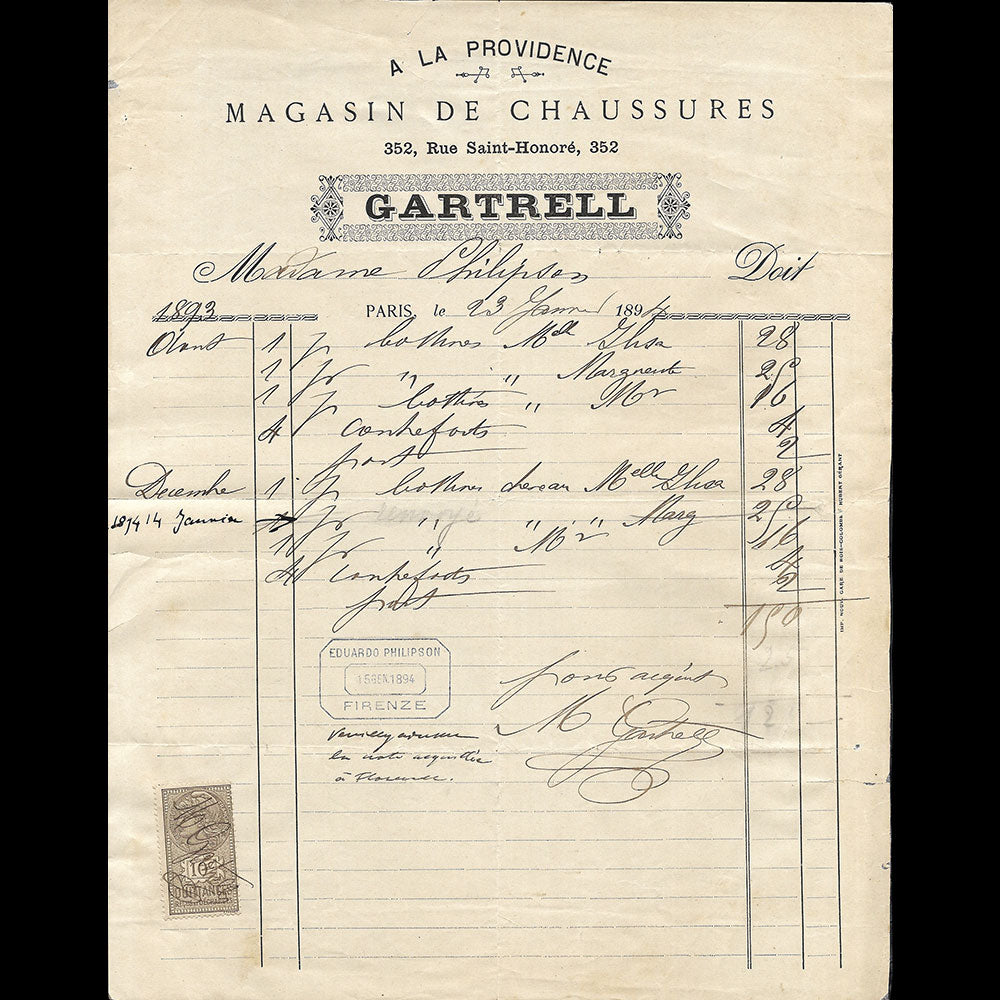 A LA PROVIDENCE
MAGASIN DE CHAUSSURES
352, Rue Saint-Honoré, 352
GARTRELL
Madame Philipson Doit
1893 PARIS, le 23 Janvier 1894
1 p bottines Mell 28
1 p " " Marguerite 25
1 p bottines " Mr 16
4 contreforts 4
port 2
Decembre 1 p bottines chevreau Melle 28
1894 14 Janvier 1 p " " " Marg 25
1 p " Mr 16
4 contreforts 4
port 2
150
EDUARDO PHILIPSON
15 GEN. 1894
FIRENZE
pour acquit
M Gartrell
Veuillez
la note acquittée
à Florence.
10c
QUITTANCES
IMP. NOUV. GARE DE BOIS-COLOMBES HUBERT GÉRANT